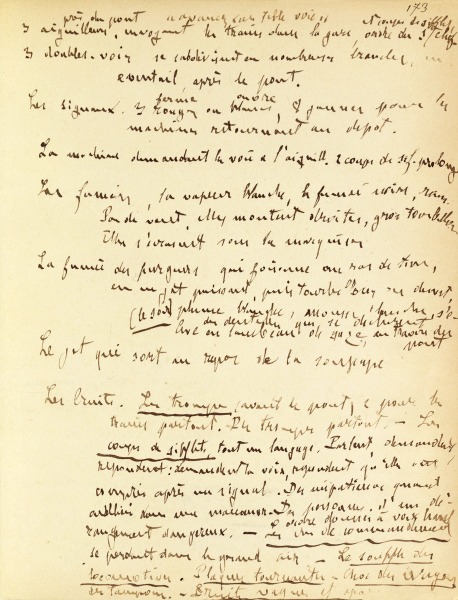 173
près du pont
3 aiguilleurs, envoyant les trains dans la gare, ordre du s/chef
3 doubles-voies se subdivisent en nombreuses branches, en
éventail après le pont.
fermé ouvre
Les signaux. 3 rouges ou blancs, 8 jaunes pour les
machines retournant au dépôt.
La machine demandant la voie à l'aiguill. 2 coups de sif. prolong
Les fumées, la vapeur blanche, la fumée noire,
Pas de vent, elles montent droites, gros tourbillon
Elles s'écrasent sous la marquise
La fumée des purgeurs qui foisonne au ras de terre,
en un jet puissant, puis tourbillons devant,
(le soir) plume blanche,
des dentelles qui se déchirent
Avec un lambeau de gaze, au travers du
pont
Le jet qui sort au repos de la soupape
Les bruits. Les trompes, avant le pont, 2 pour les
trains partant. Des trompes partout. — Les
coups de sifflet, tout un langage. Partent, demandent,
répondent: demandent la voie, répondent qu'elles ont
compris après un signal. Des impatiences quand
oubliées dans une manœuvre. Des
dangereux. — Les ordres donnés à voix haute
Les cris de commandement
se perdent dans le grand air — Le souffle des
locomotives. Plaques tournantes — Choc des wagons
et tampons. — Bruit vague